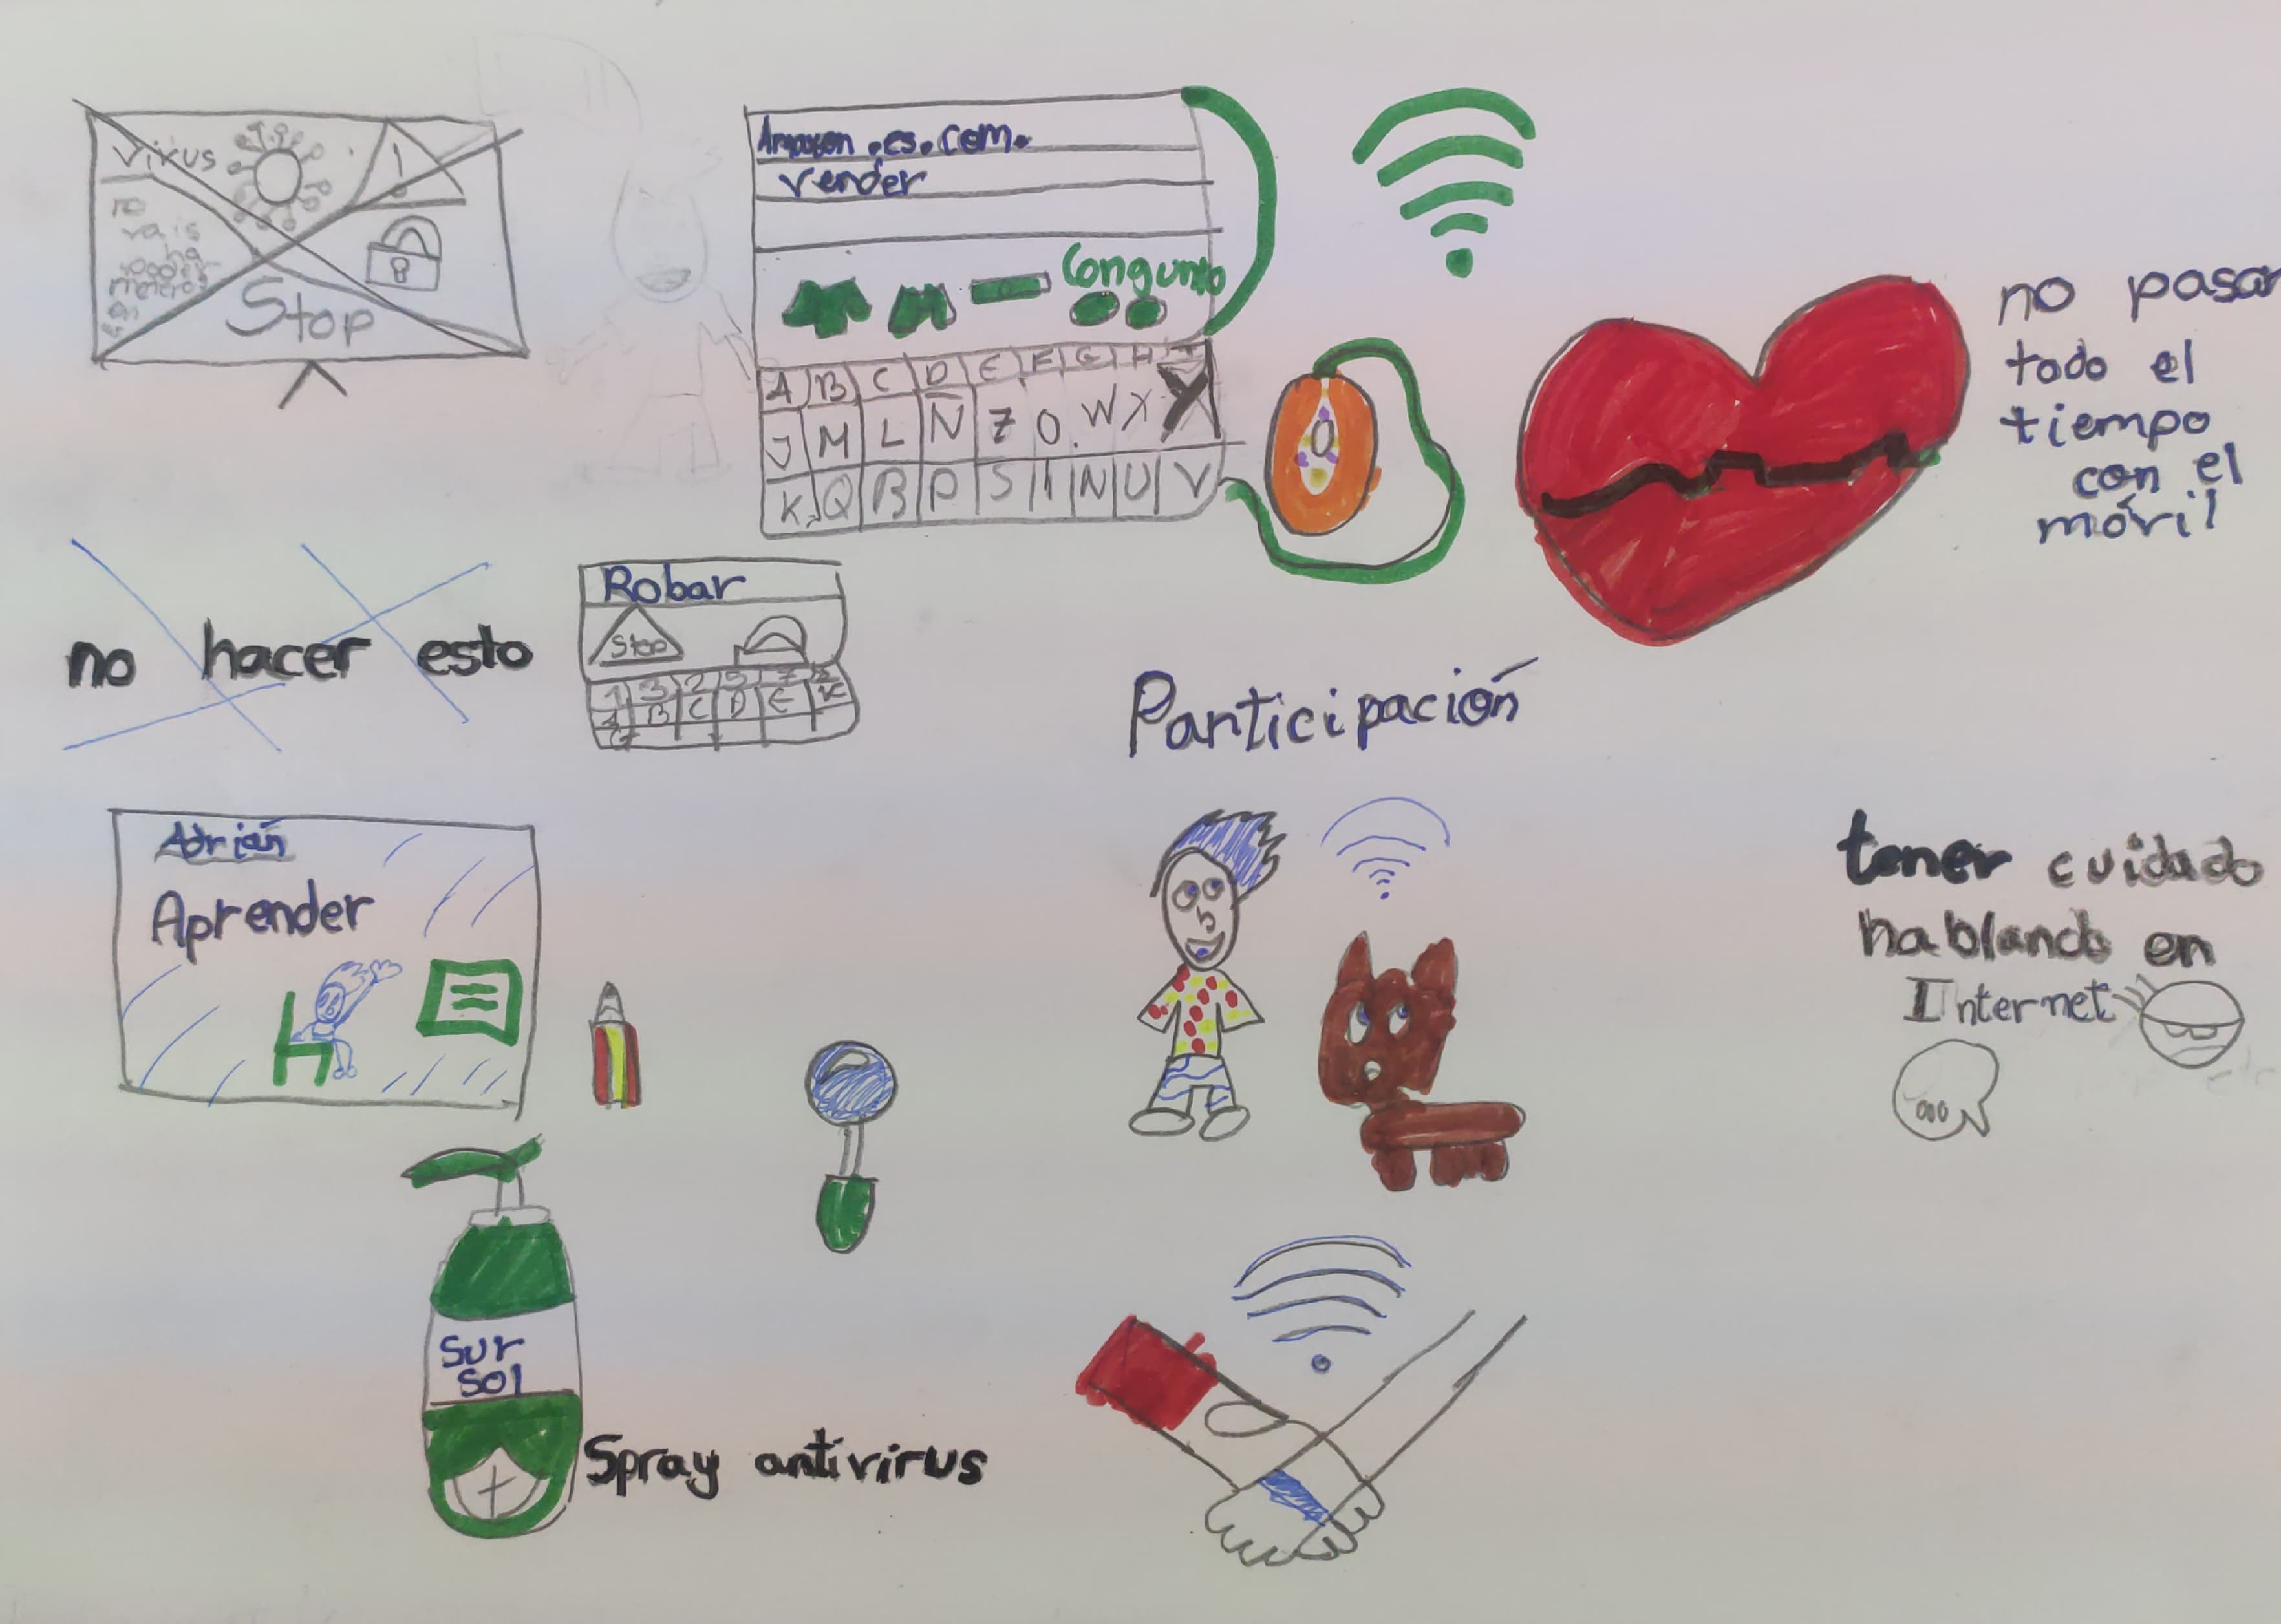 Virus
no
vais
ha
poder
meteros
en
Stop
Amazon.es.com.
vender
Congunto
A B C D E F G H I
J M L Ñ Z O. W X Y
K Q B P S I N U V
no pasar
todo el
tiempo
con el
móvil
no hacer esto
Robar
Stop
1 3 2 5 7
A B C D E K
G
Participación
Adrián
Aprender
tener cuidado
hablando en
Internet
Sur
sol
Spray antivirus